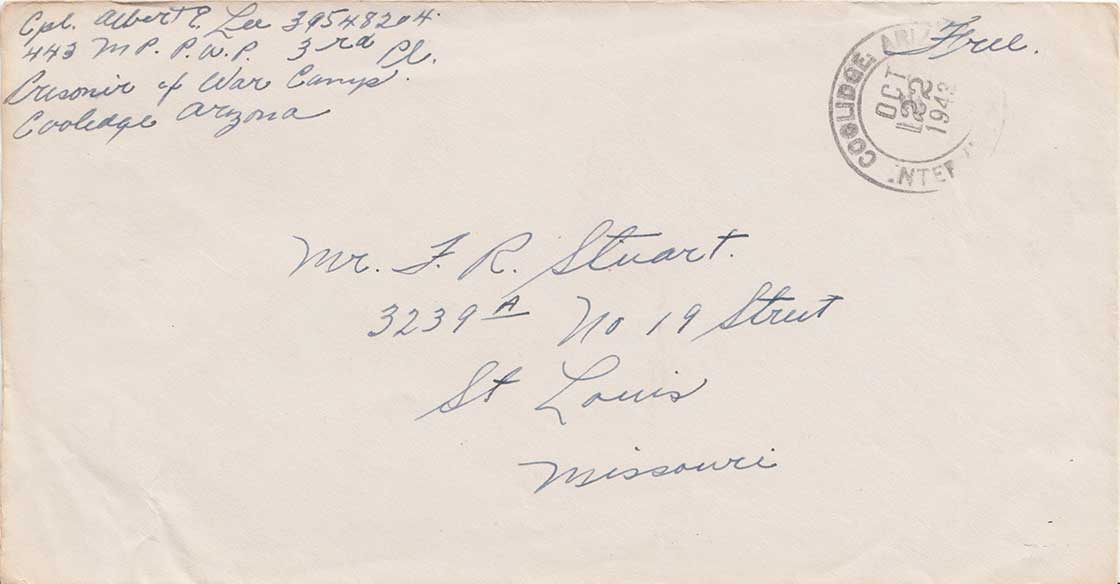 Cpl. Albert E. Lee 39548204.
443 M P. P. W. P. 3rd Pl.
Prisonir of War Camp.
Cooledge Arizona
Free.
COOLIDGE, ARIZ
OCT
22
1943
INTER
Mr. F. R. Stuart.
3239 A No 19 Street
St Louis
Missouri